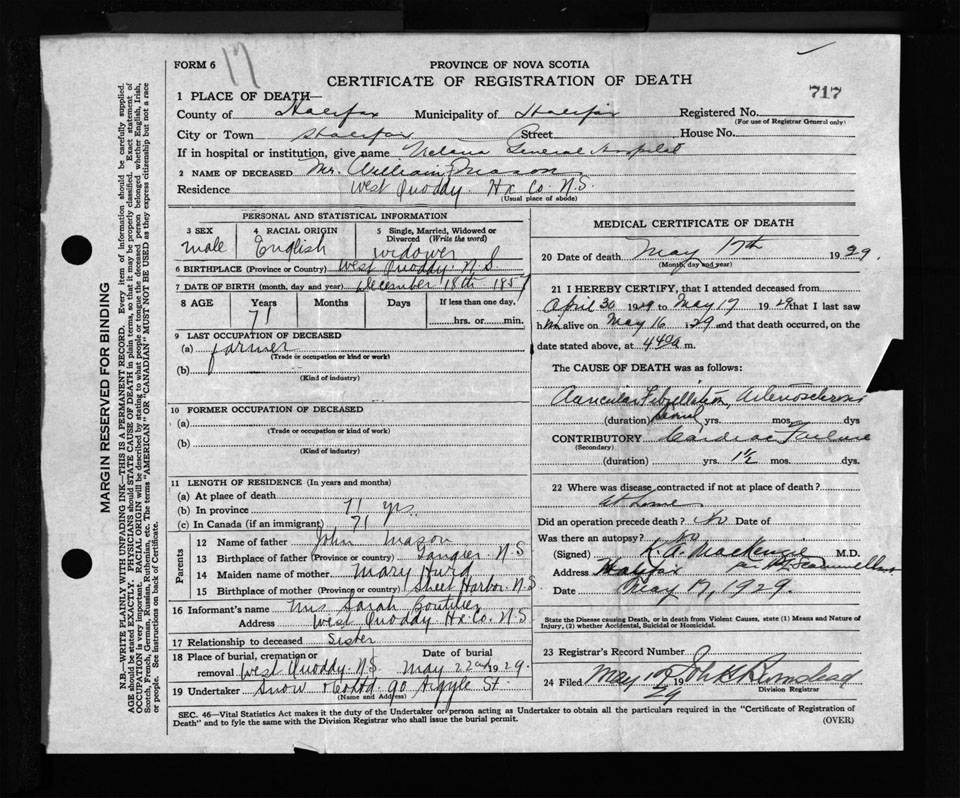 17
FORM 6
PROVINCE OF NOVA SCOTIA
CERTIFICATE OF REGISTRATION OF DEATH
717
1 PLACE OF DEATH—
County of Halifax Municipality of Halifax Registered No.
(For use of Registrar General only)
City or Town Halifax Street House No.
If in hospital or institution, give name Victoria General Hospital
2 NAME OF DECEASED Mr. William Mason
Residence West Quoddy Hx Co. N.S.
(Usual place of abode)
PERSONAL AND STATISTICAL INFORMATION
3 SEX 4 RACIAL ORIGIN 5 Single, Married, Widowed or Divorced (Write the word)
Male English widower
6 BIRTHPLACE (Province or Country) West Quoddy N.S
7 DATE OF BIRTH (month, day and year) December 18th 1857
8 AGE Years Months Days If less than one day,
71 hrs. or min.
9 LAST OCCUPATION OF DECEASED
(a) farmer
(Trade or occupation or kind or work)
(b)
(Kind of industry)
10 FORMER OCCUPATION OF DECEASED
(a)
(Trade or occupation or kind of work)
(b)
(Kind of industry)
11 LENGTH OF RESIDENCE (In years and months)
(a) At place of death
(b) In province 71 yrs.
(c) In Canada (if an immigrant) 71
Parents
12 Name of father John Mason
13 Birthplace of father (Province or country) Tangier N.S
14 Maiden name of mother Mary Hurd
15 Birthplace of mother (Province or country) Sheet Harbor N.S
16 Informant's name Mrs Sarah Boutilier
Address West Quoddy Hx Co. N.S.
17 Relationship to deceased Sister
18 Place of burial, cremation or removal West Quoddy N.S Date of burial May 22nd 1929
19 Undertaker Snow & Co Ltd 90 Argyle St.
(Name and Address)
MEDICAL CERTIFICATE OF DEATH
20 Date of death May 17th 1929.
(Month, day and year)
21 I HEREBY CERTIFY, that I attended deceased from
April 30 1929 to May 17 1929 that I last saw
him alive on May 16 1929 and that death occurred, on the
date stated above, at 440a m.
The CAUSE OF DEATH was as follows:
Auricular Fibrillation, Arteriosclerosis
(duration) several yrs. mos. dys.
CONTRIBUTORY Cardiac Failure
(Secondary)
(duration) yrs. 1½ mos. dys.
22 Where was disease contracted if not at place of death?
at home
Did an operation precede death? No Date of
Was there an autopsy? No
(Signed) K. A. MacKenzie M.D.
Address Halifax per
Date May 17, 1929.
State the Disease causing Death, or in death from Violent Causes, state (1) Means and Nature of
Injury, (2) whether Accidental, Suicidal or Homicidal.
23 Registrar's Record Number
24 Filed May 19
29
Division Registrar
SEC. 46—Vital Statistics Act makes it the duty of the Undertaker or person acting as Undertaker to obtain all the particulars required in the "Certificate of Registration of
Death" and to fyle the same with the Division Registrar who shall issue the burial permit.
(OVER)
MARGIN RESERVED FOR BINDING
N.B.—WRITE PLAINLY WITH UNFADING INK—THIS IS A PERMANENT RECORD. Every item of information should be carefully supplied.
AGE should be stated EXACTLY. PHYSICIANS should STATE CAUSE OF DEATH in plain terms, so that it may be properly classified. Exact statement of
OCCUPATION is very important. RACIAL ORIGIN will be described by stating to what people or tongue the deceased person belonged whether English, Irish,
Scotch, French, German, Russian, Ruthenian, etc. The terms "AMERICAN" OR "CANADIAN" MUST NOT BE USED as they express citizenship but not a race
or people. See instructions on back of Certificate.